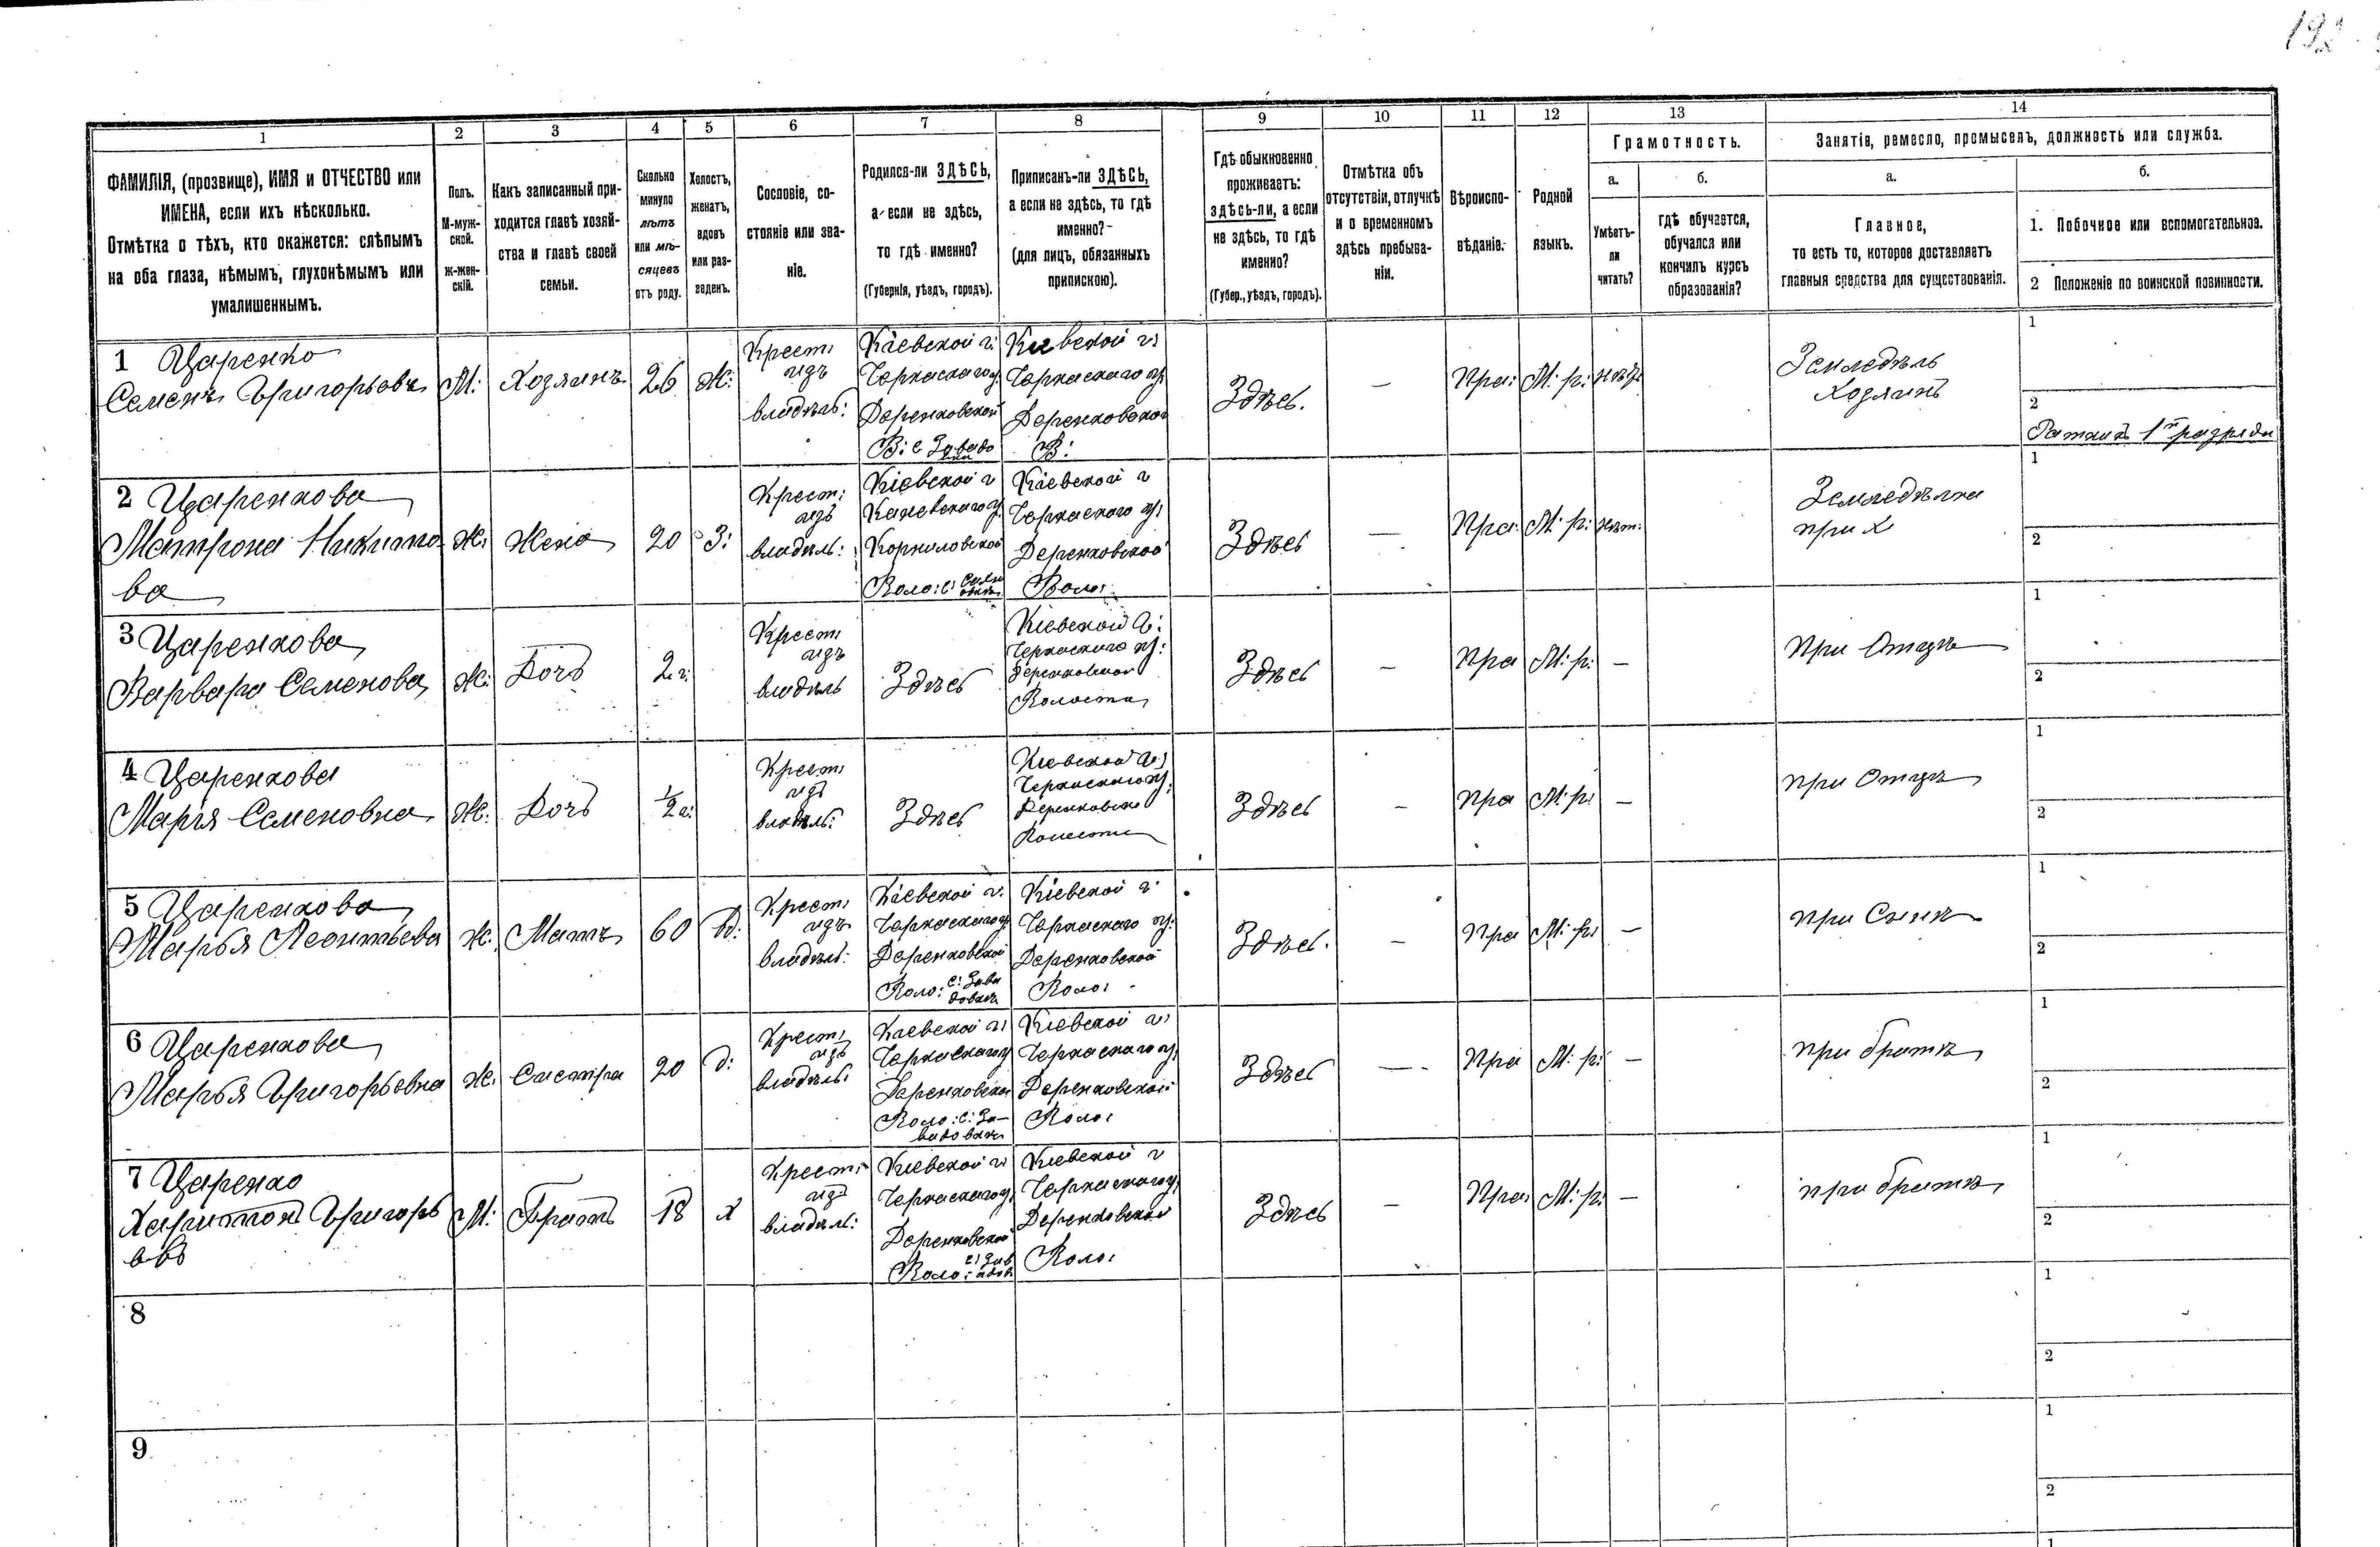 192
1
2
3
4
5
6
7
8
9
10
11
12
13
14
ФАМИЛІЯ, (прозвище), ИМЯ и ОТЧЕСТВО или
ИМЕНА, если ихъ нѣсколько.
Отмѣтка о тѣхъ, кто окажется: слѣпымъ
на оба глаза, нѣмымъ, глухонѣмымъ или
умалишеннымъ.
Полъ.
М-муж-
ской.
Ж-жен-
скій.
Какъ записанный при-
ходится главѣ хозяй-
ства и главѣ своей
семьи.
Сколько
минуло
лѣтъ
или мѣ-
сяцевъ
отъ роду.
Холостъ,
женатъ,
вдовъ
или раз-
веденъ.
Сословіе, со-
стояніе или зва-
ніе.
Родился-ли ЗДѢСЬ,
а если не здѣсь,
то гдѣ именно?
(Губернія, уѣздъ, городъ).
Приписанъ-ли ЗДѢСЬ,
а если не здѣсь, то гдѣ
именно?
(для лицъ, обязанныхъ
припискою).
Гдѣ обыкновенно
проживаетъ:
здѣсь-ли, а если
не здѣсь, то гдѣ
именно?
(Губер., уѣздъ, городъ).
Отмѣтка объ
отсутствіи, отлучкѣ
и о временномъ
здѣсь пребыва-
ніи.
Вѣроиспо-
вѣданіе.
Родной
языкъ.
Грамотность.
а.
Умѣетъ-
ли
читать?
б.
гдѣ обучается,
обучался или
кончилъ курсъ
образованія?
Занятія, ремесло, промыселъ, должность или служба.
а.
Главное,
то есть то, которое доставляетъ
главныя средства для существованія.
б.
1. Побочное или вспомогательное.
2 Положеніе по воинской повинности.
1 Царенко
Семенъ Григорьевъ
М:
Хозяинъ
26
Ж:
Крест:
изъ
владѣль:
Кіевской г:
Черкаскаго у:
Деренковской
В: с Завадо
Киевской г:
Черкаскаго у:
Деренковской
В:
Здѣсь.
—
Пра:
М: р:
нѣт:
Земледѣль
Хозяинъ
1
2
Ратникъ 1го разряда
2 Царенкова
Матрона Никито
ва
Ж:
Жена
20
З:
Крест:
изъ
владѣль:
Кіевской г
Каневскаго у:
Корниловской
Воло: с:
Кіевской г
Черкаского у:
Деренковской
Воло:
Здѣсь
—
Пра:
М: р:
нѣт:
Земледѣлка
при Х
1
2
3 Царенкова
Варвара Семенова
Ж:
Дочь
2 г:
Крест:
изъ
владѣль
Здѣсь
Кіевской г:
Черкаскаго у:
Деренковской
Волости
Здѣсь
—
Пра
М: р:
—
При Отцѣ
1
2
4 Царенкова
Марія Семеновна
Ж:
Дочь
1/2 г:
Крест:
изъ
владѣль:
Здѣсь
Киевской г:
Черкаскаго у:
Деренковско
Волости
Здѣсь
—
Пра
М: р:
—
при Отцѣ
1
2
5 Царенкова
Марья Леонтьева
Ж:
Мать
60
Вд:
Крест:
изъ
владѣль:
Кіевской г:
Черкаскаго у:
Деренковской
Воло: с: Зава
довкѣ
Кіевской г:
Черкаского у:
Деренковской
Воло:
Здѣсь.
—
Пра
М: р:
—
при Сынѣ
1
2
6 Царенкова
Марья Григорьевна
Ж:
Сестра
20
Д:
Крест:
изъ
владѣль:
Киевской г:
Черкаскаго у
Деренковской
Воло: с: За-
вадовкѣ
Кіевской г:
Черкаскаго у:
Деренковской
Воло:
Здѣсь
—
Пра
М: р:
—
при братѣ
1
2
7 Царенко
Харитон Григорь
евъ
М:
Братъ
18
Х
Крест:
изъ
владѣль:
Киевской г:
Черкаскаго у:
Деренковской
Воло: с: Зав
адов
Киевской г
Черкаскаго у:
Деренковской
Воло:
Здѣсь
—
Пра:
М: р:
—
при братѣ
1
2
8
1
2
9
1
2
1